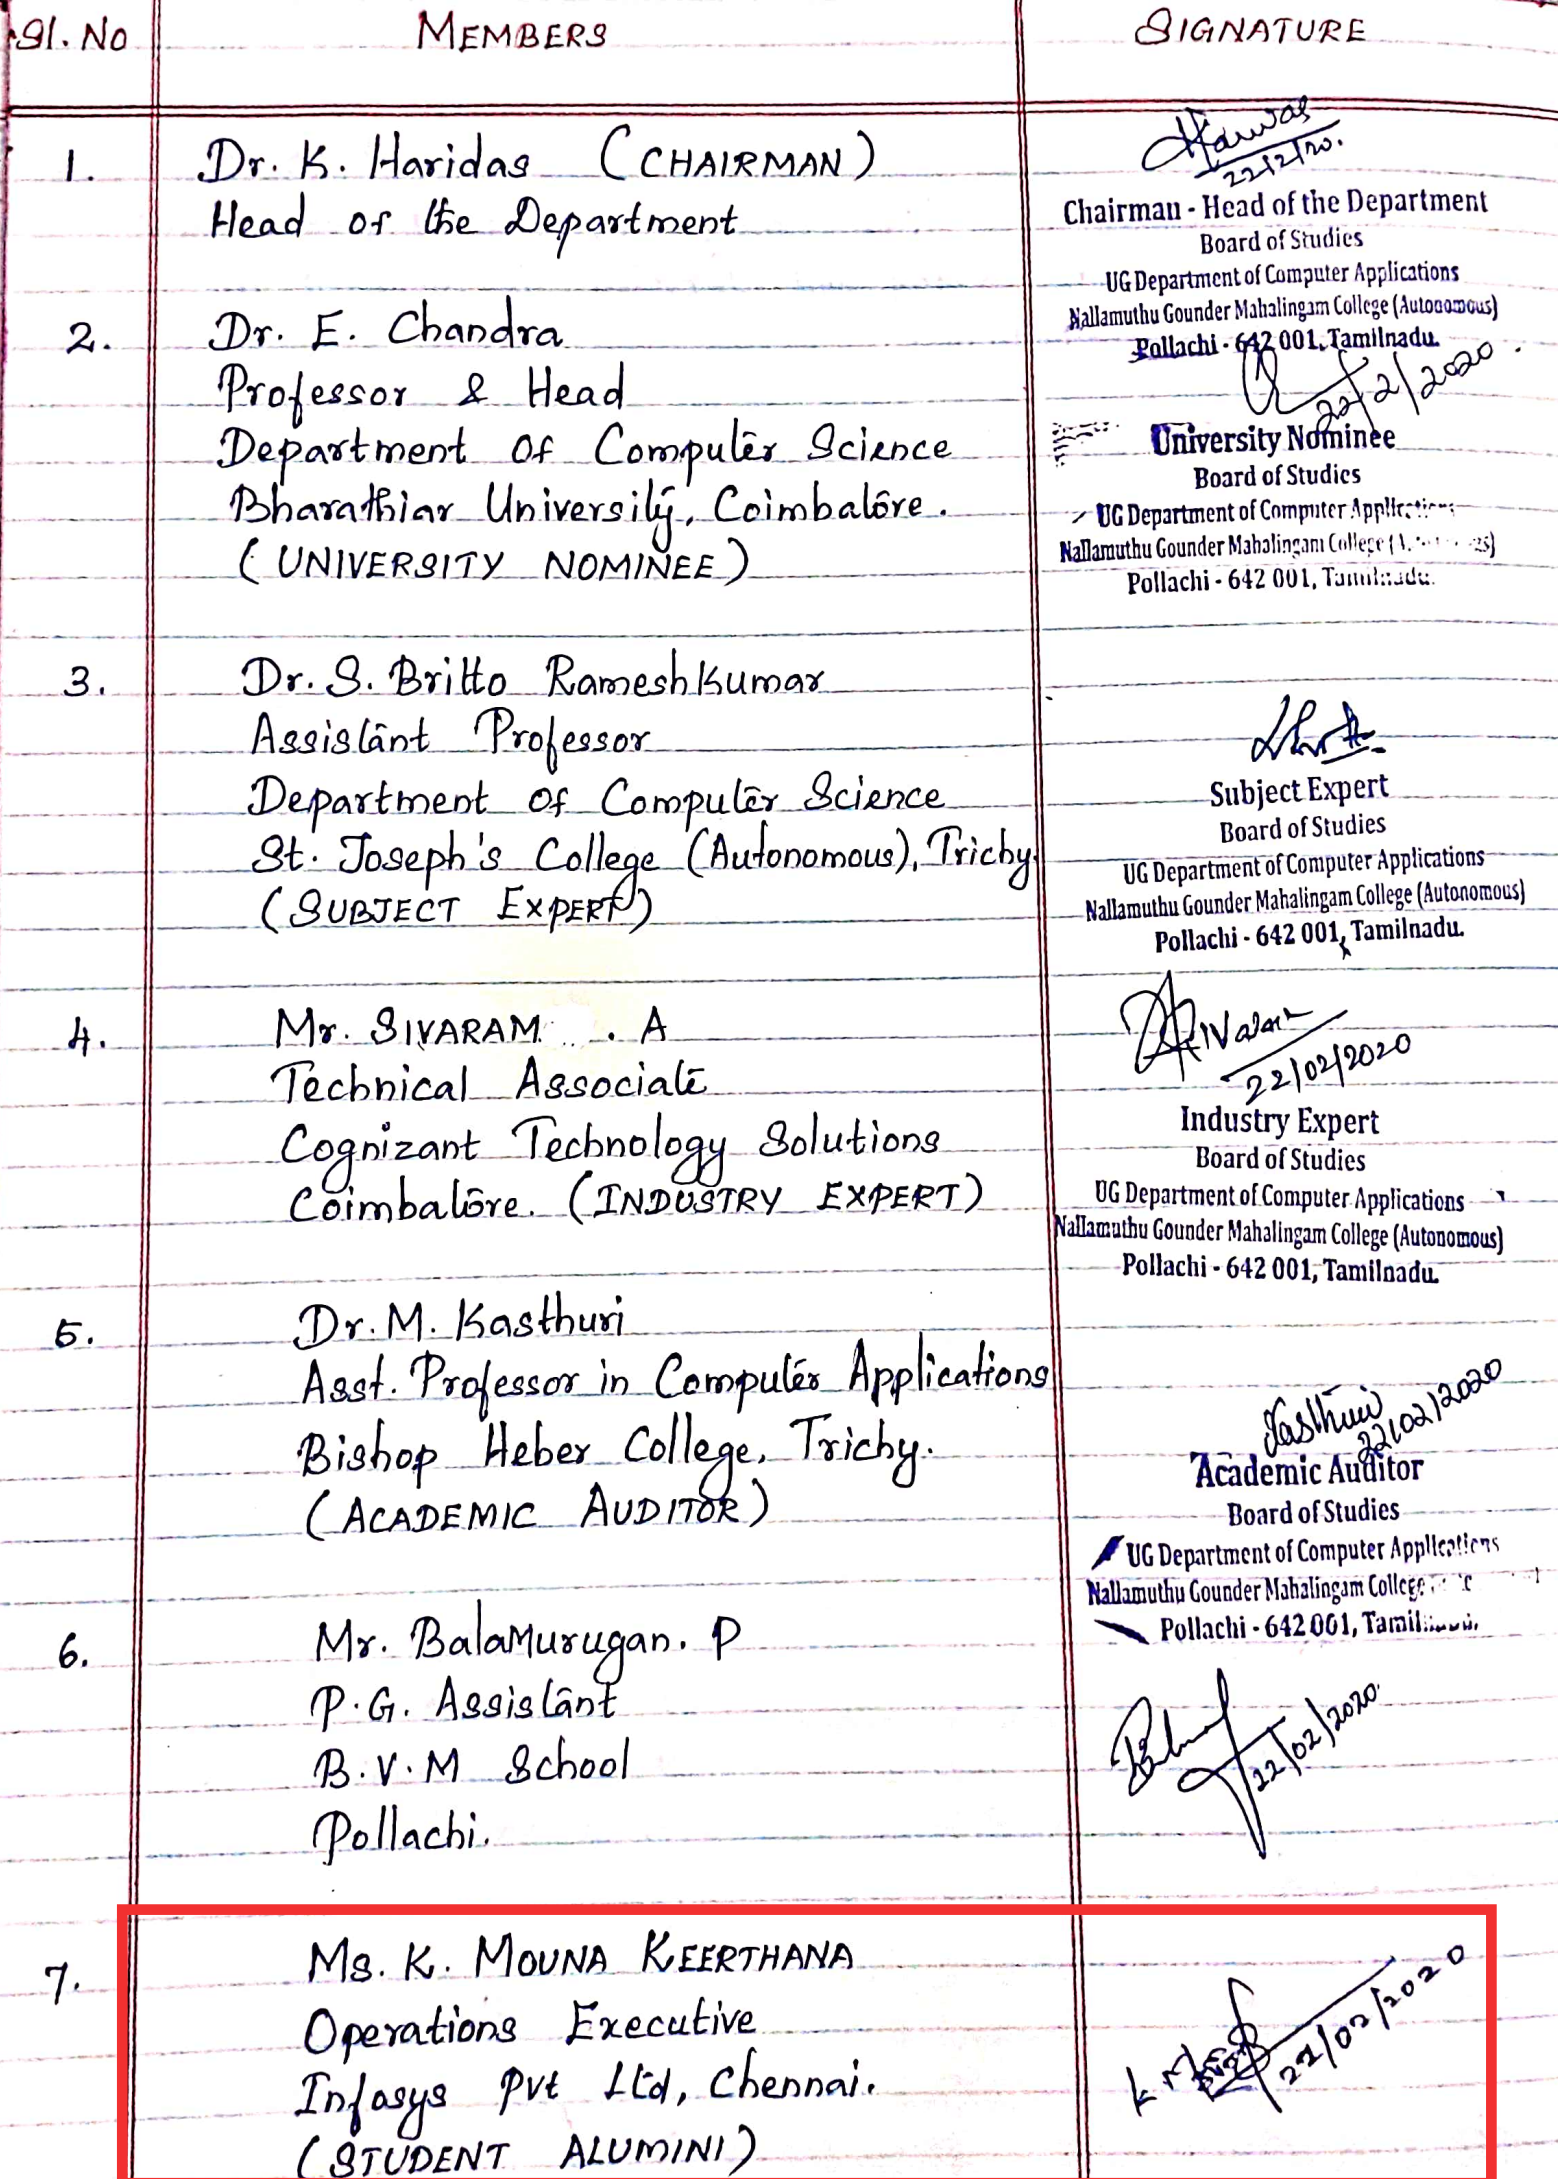 Sl. No MEMBERS SIGNATURE
1. Dr. K. Haridas (CHAIRMAN)
Head of the Department
22/2/20.
Chairman - Head of the Department
Board of Studies
UG Department of Computer Applications
Nallamuthu Gounder Mahalingam College (Autonomous)
Pollachi - 642 001, Tamilnadu.
2. Dr. E. Chandra
Professor & Head
Department of Computer Science
Bharathiar University, Coimbatore.
(UNIVERSITY NOMINEE)
22/2/2020.
University Nominee
Board of Studies
UG Department of Computer Applications
Nallamuthu Gounder Mahalingam College
Pollachi - 642 001, Tamilnadu.
3. Dr. S. Britto RameshKumar
Assistant Professor
Department of Computer Science
St. Joseph's College (Autonomous), Trichy
(SUBJECT EXPERT)
Subject Expert
Board of Studies
UG Department of Computer Applications
Nallamuthu Gounder Mahalingam College (Autonomous)
Pollachi - 642 001, Tamilnadu.
4. Mr. SIVARAM . A
Technical Associate
Cognizant Technology Solutions
Coimbatore. (INDUSTRY EXPERT)
22/02/2020
Industry Expert
Board of Studies
UG Department of Computer Applications
Nallamuthu Gounder Mahalingam College (Autonomous)
Pollachi - 642 001, Tamilnadu.
5. Dr. M. Kasthuri
Asst. Professor in Computer Applications
Bishop Heber College, Trichy.
(ACADEMIC AUDITOR)
Kasthuri
22/02/2020
Academic Auditor
Board of Studies
UG Department of Computer Applications
Nallamuthu Gounder Mahalingam College
Pollachi - 642 001, Tamilnadu.
6. Mr. BalaMurugan. P
P.G. Assistant
B.V.M School
Pollachi.
22/02/2020.
7. Ms. K. MOUNA KEERTHANA
Operations Executive
Infosys Pvt Ltd, Chennai.
(STUDENT ALUMINI)
22/02/2020